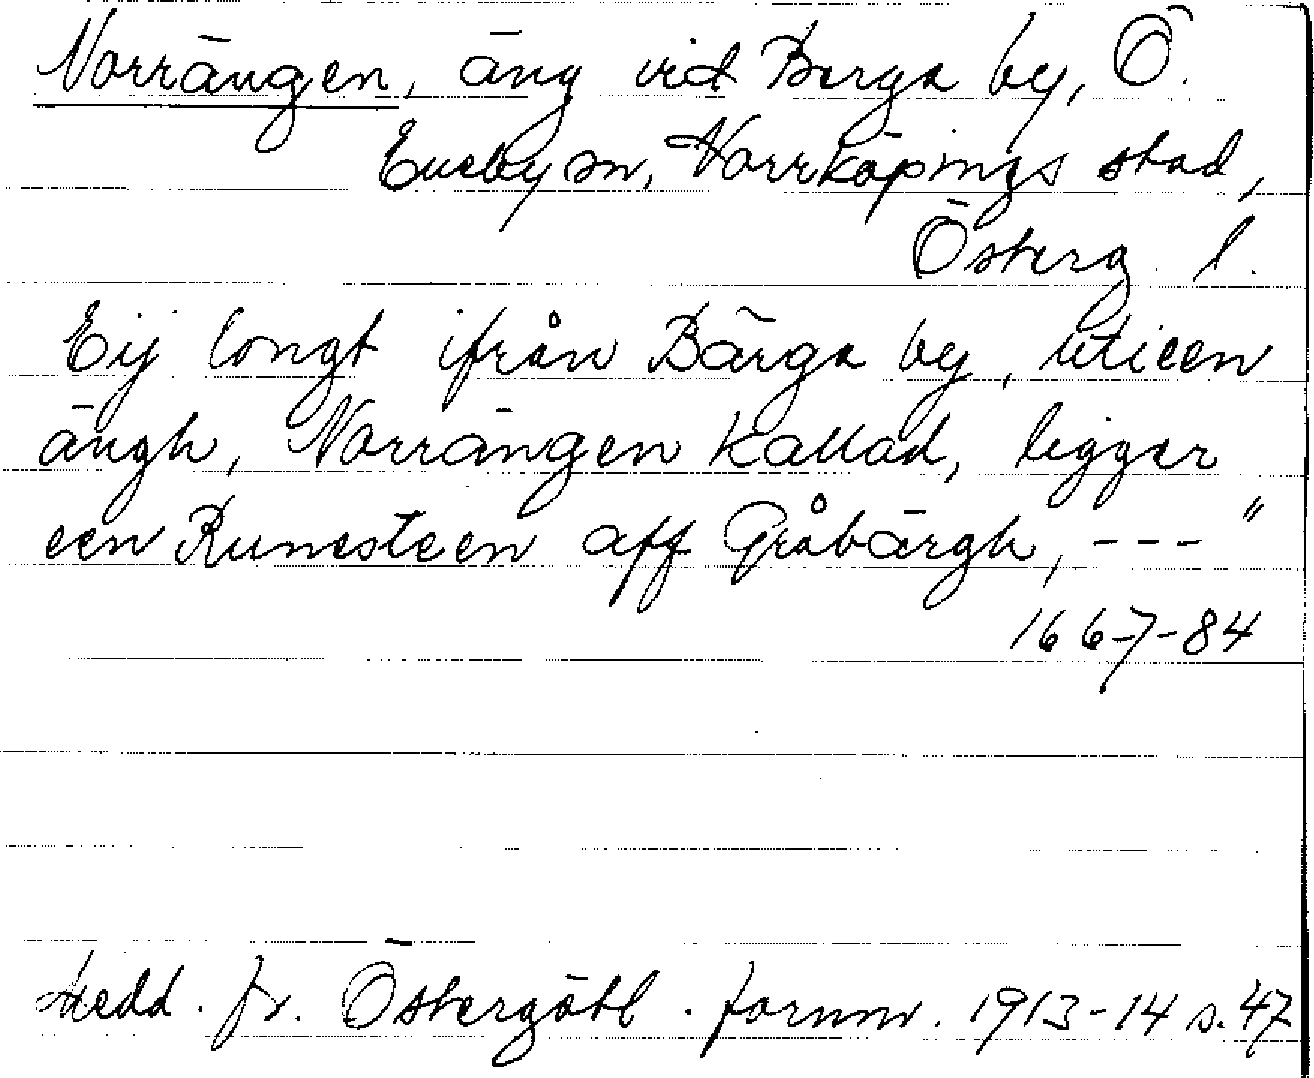 Norrängen, äng vid Berga by, Ö.
Eneby sn, Norrköpings stad,
Österg. l.
Eij longt ifrån Bärga by, uti een
ängh, Norrängen kallad, ligger
een Runesteen aff Gråbärgh, --- "
1667-84
Medd. fr. Östergötl. fornm. 1913-14 s. 47